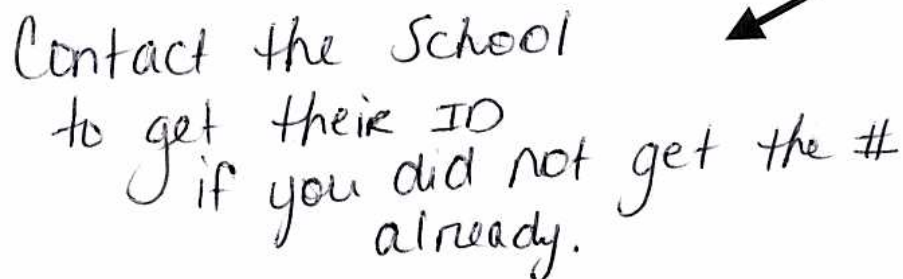 Contact the School
to get their ID
if you did not get the #
already.